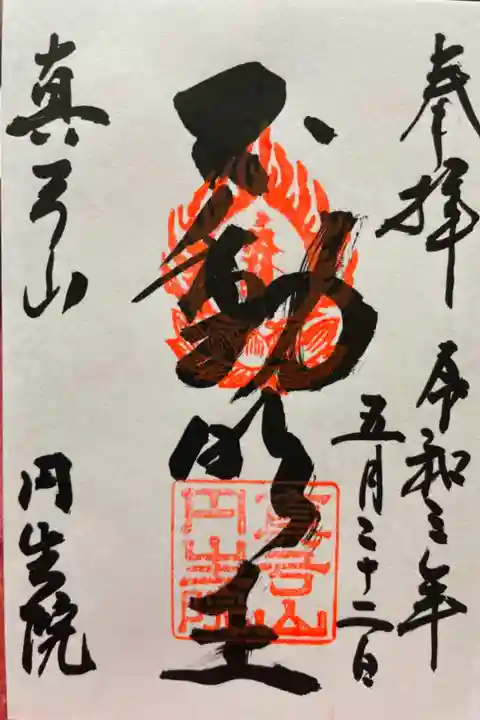 奉拝 令和三年
五月二十二日
不動明王
真弓山 円生院
真弓山
円生院